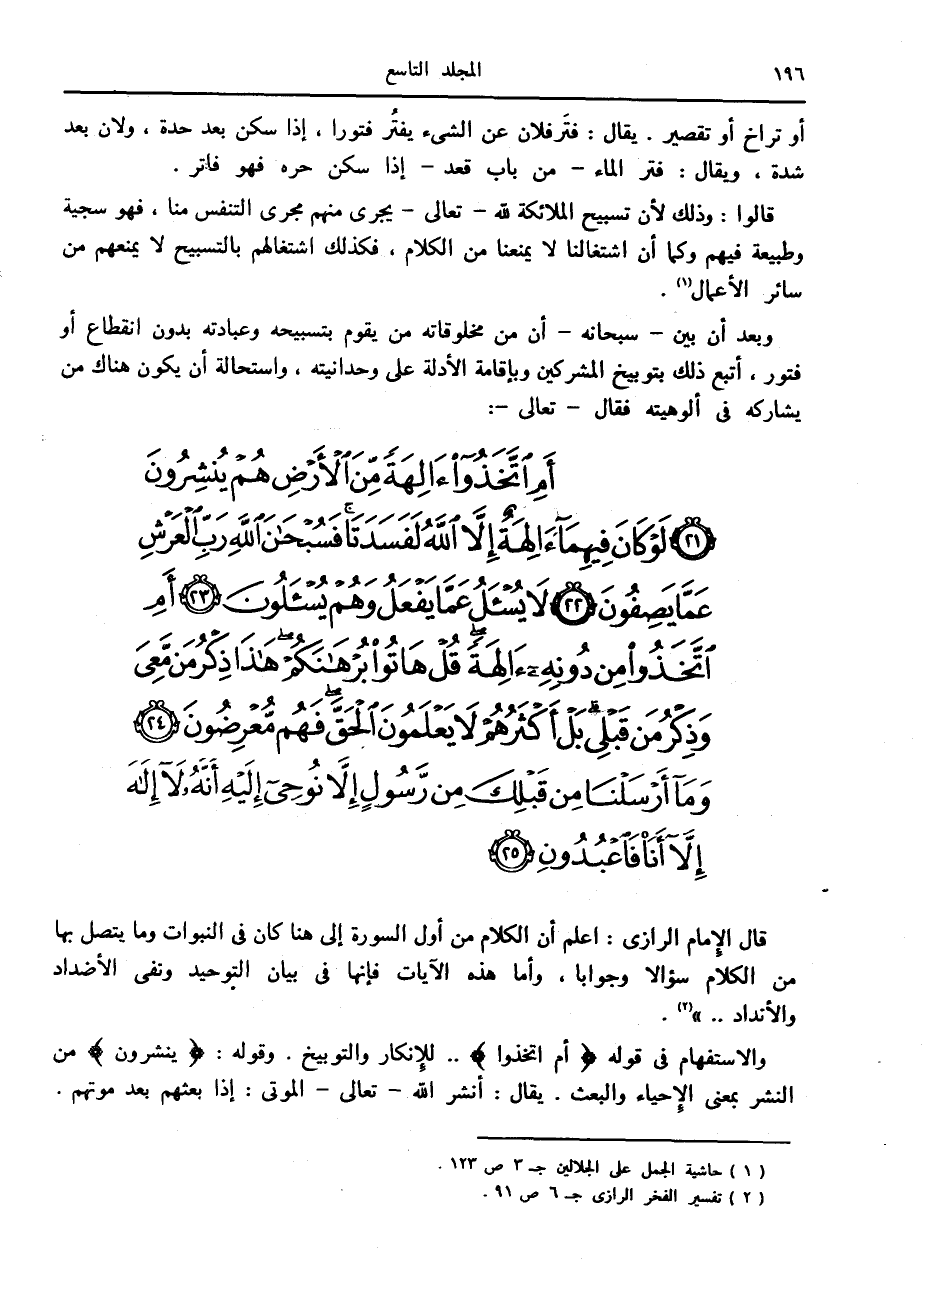 ١٩٦
المجلد التاسع
أو تراخ أو تقصير . يقال : فتَر فلان عن الشىء يفتُر فتورا ، إذا سكن بعد حدة ، ولان بعد
شدة ، ويقال : فتر الماء – من باب قعد – إذا سكن حره فهو فاتر .
قالوا : وذلك لأن تسبيح الملائكة لله – تعالى – يجرى منهم مجرى التنفس منا ، فهو سجية
وطبيعة فيهم وكما أن اشتغالنا لا يمنعنا من الكلام ، فكذلك اشتغالهم بالتسبيح لا يمنعهم من
سائر الأعمال(١) .
وبعد أن بين – سبحانه – أن من مخلوقاته من يقوم بتسبيحه وعبادته بدون انقطاع أو
فتور ، أتبع ذلك بتوبيخ المشركين وبإقامة الأدلة على وحدانيته ، واستحالة أن يكون هناك من
يشاركه فى ألوهيته فقال – تعالى –:
أَمِ ٱتَّخَذُوٓا۟ ءَالِهَةً مِّنَ ٱلْأَرْضِ هُمْ يُنشِرُونَ
٢١ لَوْ كَانَ فِيهِمَآ ءَالِهَةٌ إِلَّا ٱللَّهُ لَفَسَدَتَا ۚ فَسُبْحَٰنَ ٱللَّهِ رَبِّ ٱلْعَرْشِ
عَمَّا يَصِفُونَ ٢٢ لَا يُسْـَٔلُ عَمَّا يَفْعَلُ وَهُمْ يُسْـَٔلُونَ ٢٣ أَمِ
ٱتَّخَذُوا۟ مِن دُونِهِۦٓ ءَالِهَةً ۖ قُلْ هَاتُوا۟ بُرْهَٰنَكُمْ ۖ هَٰذَا ذِكْرُ مَن مَّعِىَ
وَذِكْرُ مَن قَبْلِى ۗ بَلْ أَكْثَرُهُمْ لَا يَعْلَمُونَ ٱلْحَقَّ ۖ فَهُم مُّعْرِضُونَ ٢٤
وَمَآ أَرْسَلْنَا مِن قَبْلِكَ مِن رَّسُولٍ إِلَّا نُوحِىٓ إِلَيْهِ أَنَّهُۥ لَآ إِلَٰهَ
إِلَّآ أَنَا۠ فَٱعْبُدُونِ ٢٥
قال الإمام الرازى : اعلم أن الكلام من أول السورة إلى هنا كان فى النبوات وما يتصل بها
من الكلام سؤالا وجوابا ، وأما هذه الآيات فإنها فى بيان التوحيد ونفى الأضداد
والأنداد .. »(٢) .
والاستفهام فى قوله ﴿ أم اتخذوا ﴾ .. للإنكار والتوبيخ . وقوله : ﴿ ينشرون ﴾ من
النشر بمعنى الإحياء والبعث . يقال : أنشر الله – تعالى – الموتى : إذا بعثهم بعد موتهم .
( ١ ) حاشية الجمل على الجلالين جـ ٣ ص ١٢٣ .
( ٢ ) تفسير الفخر الرازى جـ ٦ ص ٩١ .